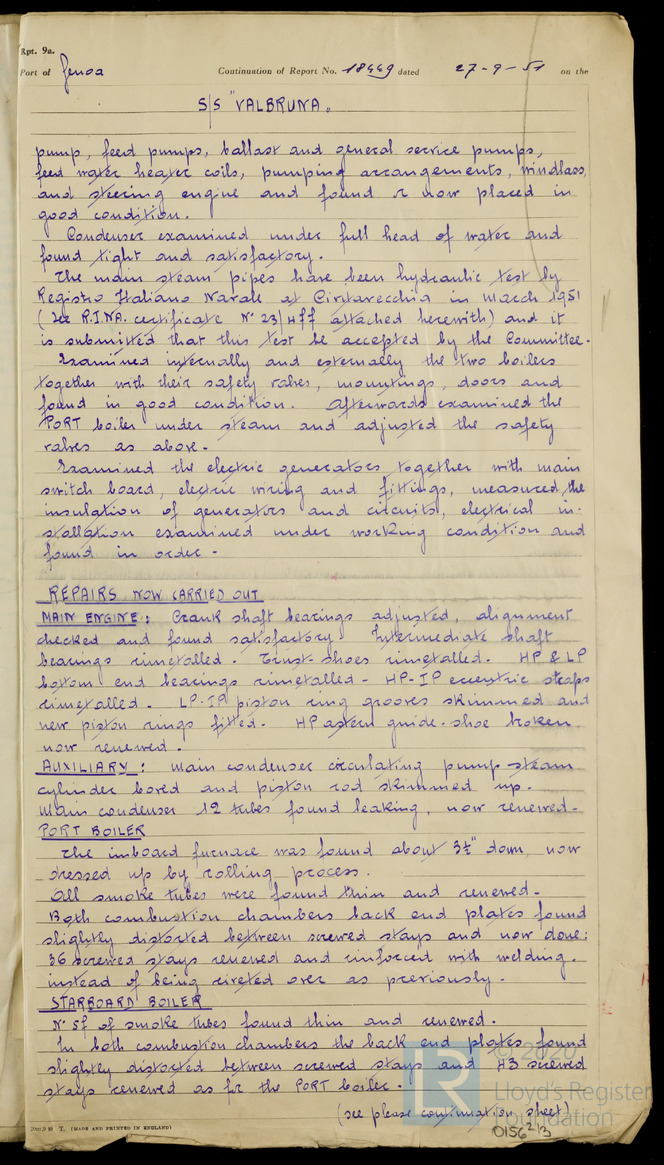 Rpt. 9a.
Port of Genoa Continuation of Report No. 18449 dated 27-9-51 on the
S/S "VALBRUNA"
pump, feed pumps, ballast and general service pumps,
feed water heater coils, pumping arrangements, windlass,
and steering engine and found or now placed in
good condition.
Condenser examined under full head of water and
found tight and satisfactory.
The main steam pipes have been hydraulic test by
Registro Italiano Navale at Civitavecchia in March 1951
(see R.I.NA. certificate N° 23/Hff attached herewith) and it
is submitted that this test be accepted by the Committee.
Examined internally and externally the two boilers
together with their safety valves, mountings, doors and
found in good condition. Afterwards examined the
PORT boiler under steam and adjusted the safety
valves as above.
Examined the electric generators together with main
switch board, electric wiring and fittings, measured the
insulation of generators and circuits, electrical in-
stallation examined under working condition and
found in order -
REPAIRS NOW CARRIED OUT
MAIN ENGINE: Crank shaft bearings adjusted, alignment
checked and found satisfactory. Intermediate shaft
bearings rimetalled. Trust-shoes rimetalled. HP & LP
bottom end bearings rimetalled - HP-IP eccentric straps
rimetalled. LP-IP piston ring grooves skimmed and
new piston rings fitted. HP astern guide-shoe broken
now renewed.
AUXILIARY: Main condenser circulating pump steam
cylinder bored and piston rod skimmed up.
Main condenser 12 tubes found leaking, now renewed-
PORT BOILER
The inboard furnace was found about 3½" down, now
dressed up by rolling process.
All smoke tubes were found thin and renewed-
Both combustion chambers back end plates found
slightly distorted between screwed stays and now done:
36 screwed stays renewed and rinforced with welding.
instead of being riveted over as previously.
STARBOARD BOILER
N° 57 of smoke tubes found thin and renewed.
In both combustion chambers the back end plates found
slightly distorted between screwed stays and 43 screwed
stays renewed as for the PORT boiler.
(see please continuation sheet)
T. (MADE AND PRINTED IN ENGLAND)
© 2020
LR
Lloyd's Register
Foundation
0156 2/3